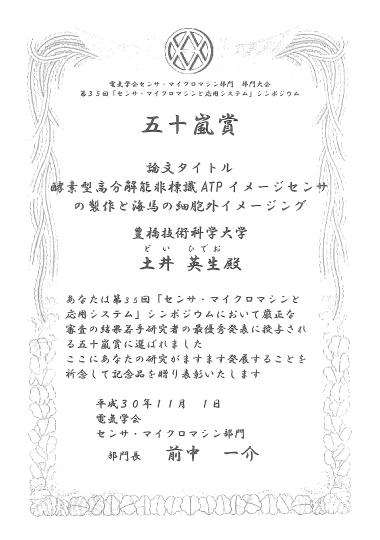 電気学会センサ・マイクロマシン部門 部門大会
第３５回「センサ・マイクロマシンと応用システム」シンポジウム
五十嵐賞
論文タイトル
酵素型高分解能非標識ATPイメージセンサ
の製作と海馬の細胞外イメージング
豊橋技術科学大学
どい ひでお
土井 英生殿
あなたは第35回「センサ・マイクロマシンと
応用システム」シンポジウムにおいて厳正な
審査の結果若手研究者の最優秀発表に授与され
る五十嵐賞に選ばれました
ここにあなたの研究がますます発展することを
祈念して記念品を贈り表彰いたします
平成３０年１１月 １日
電気学会
センサ・マイクロマシン部門
部門長 前中 一介